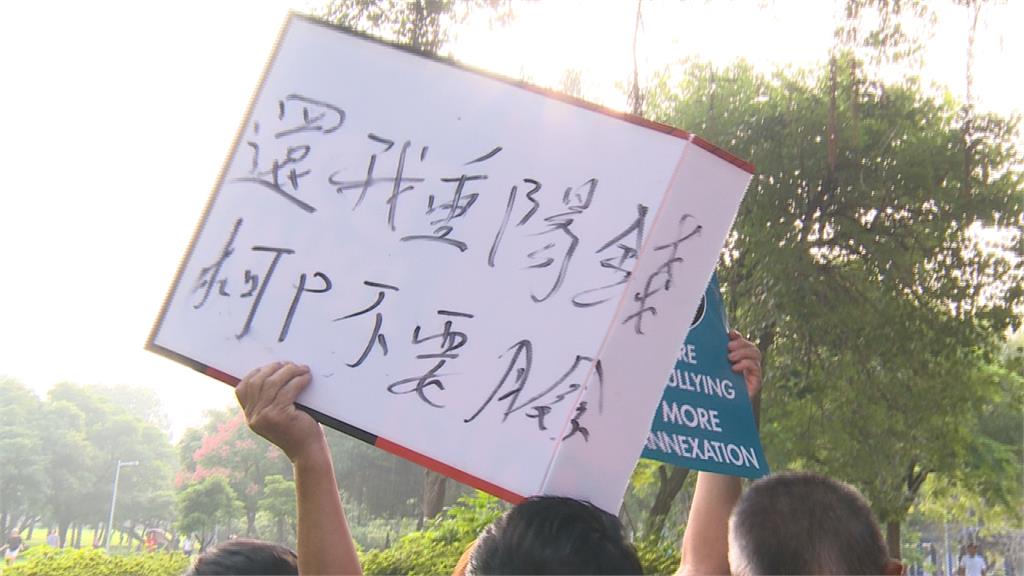 還我重陽錢
柯P不要臉
RE
ULLYING
MORE
NNEXATION